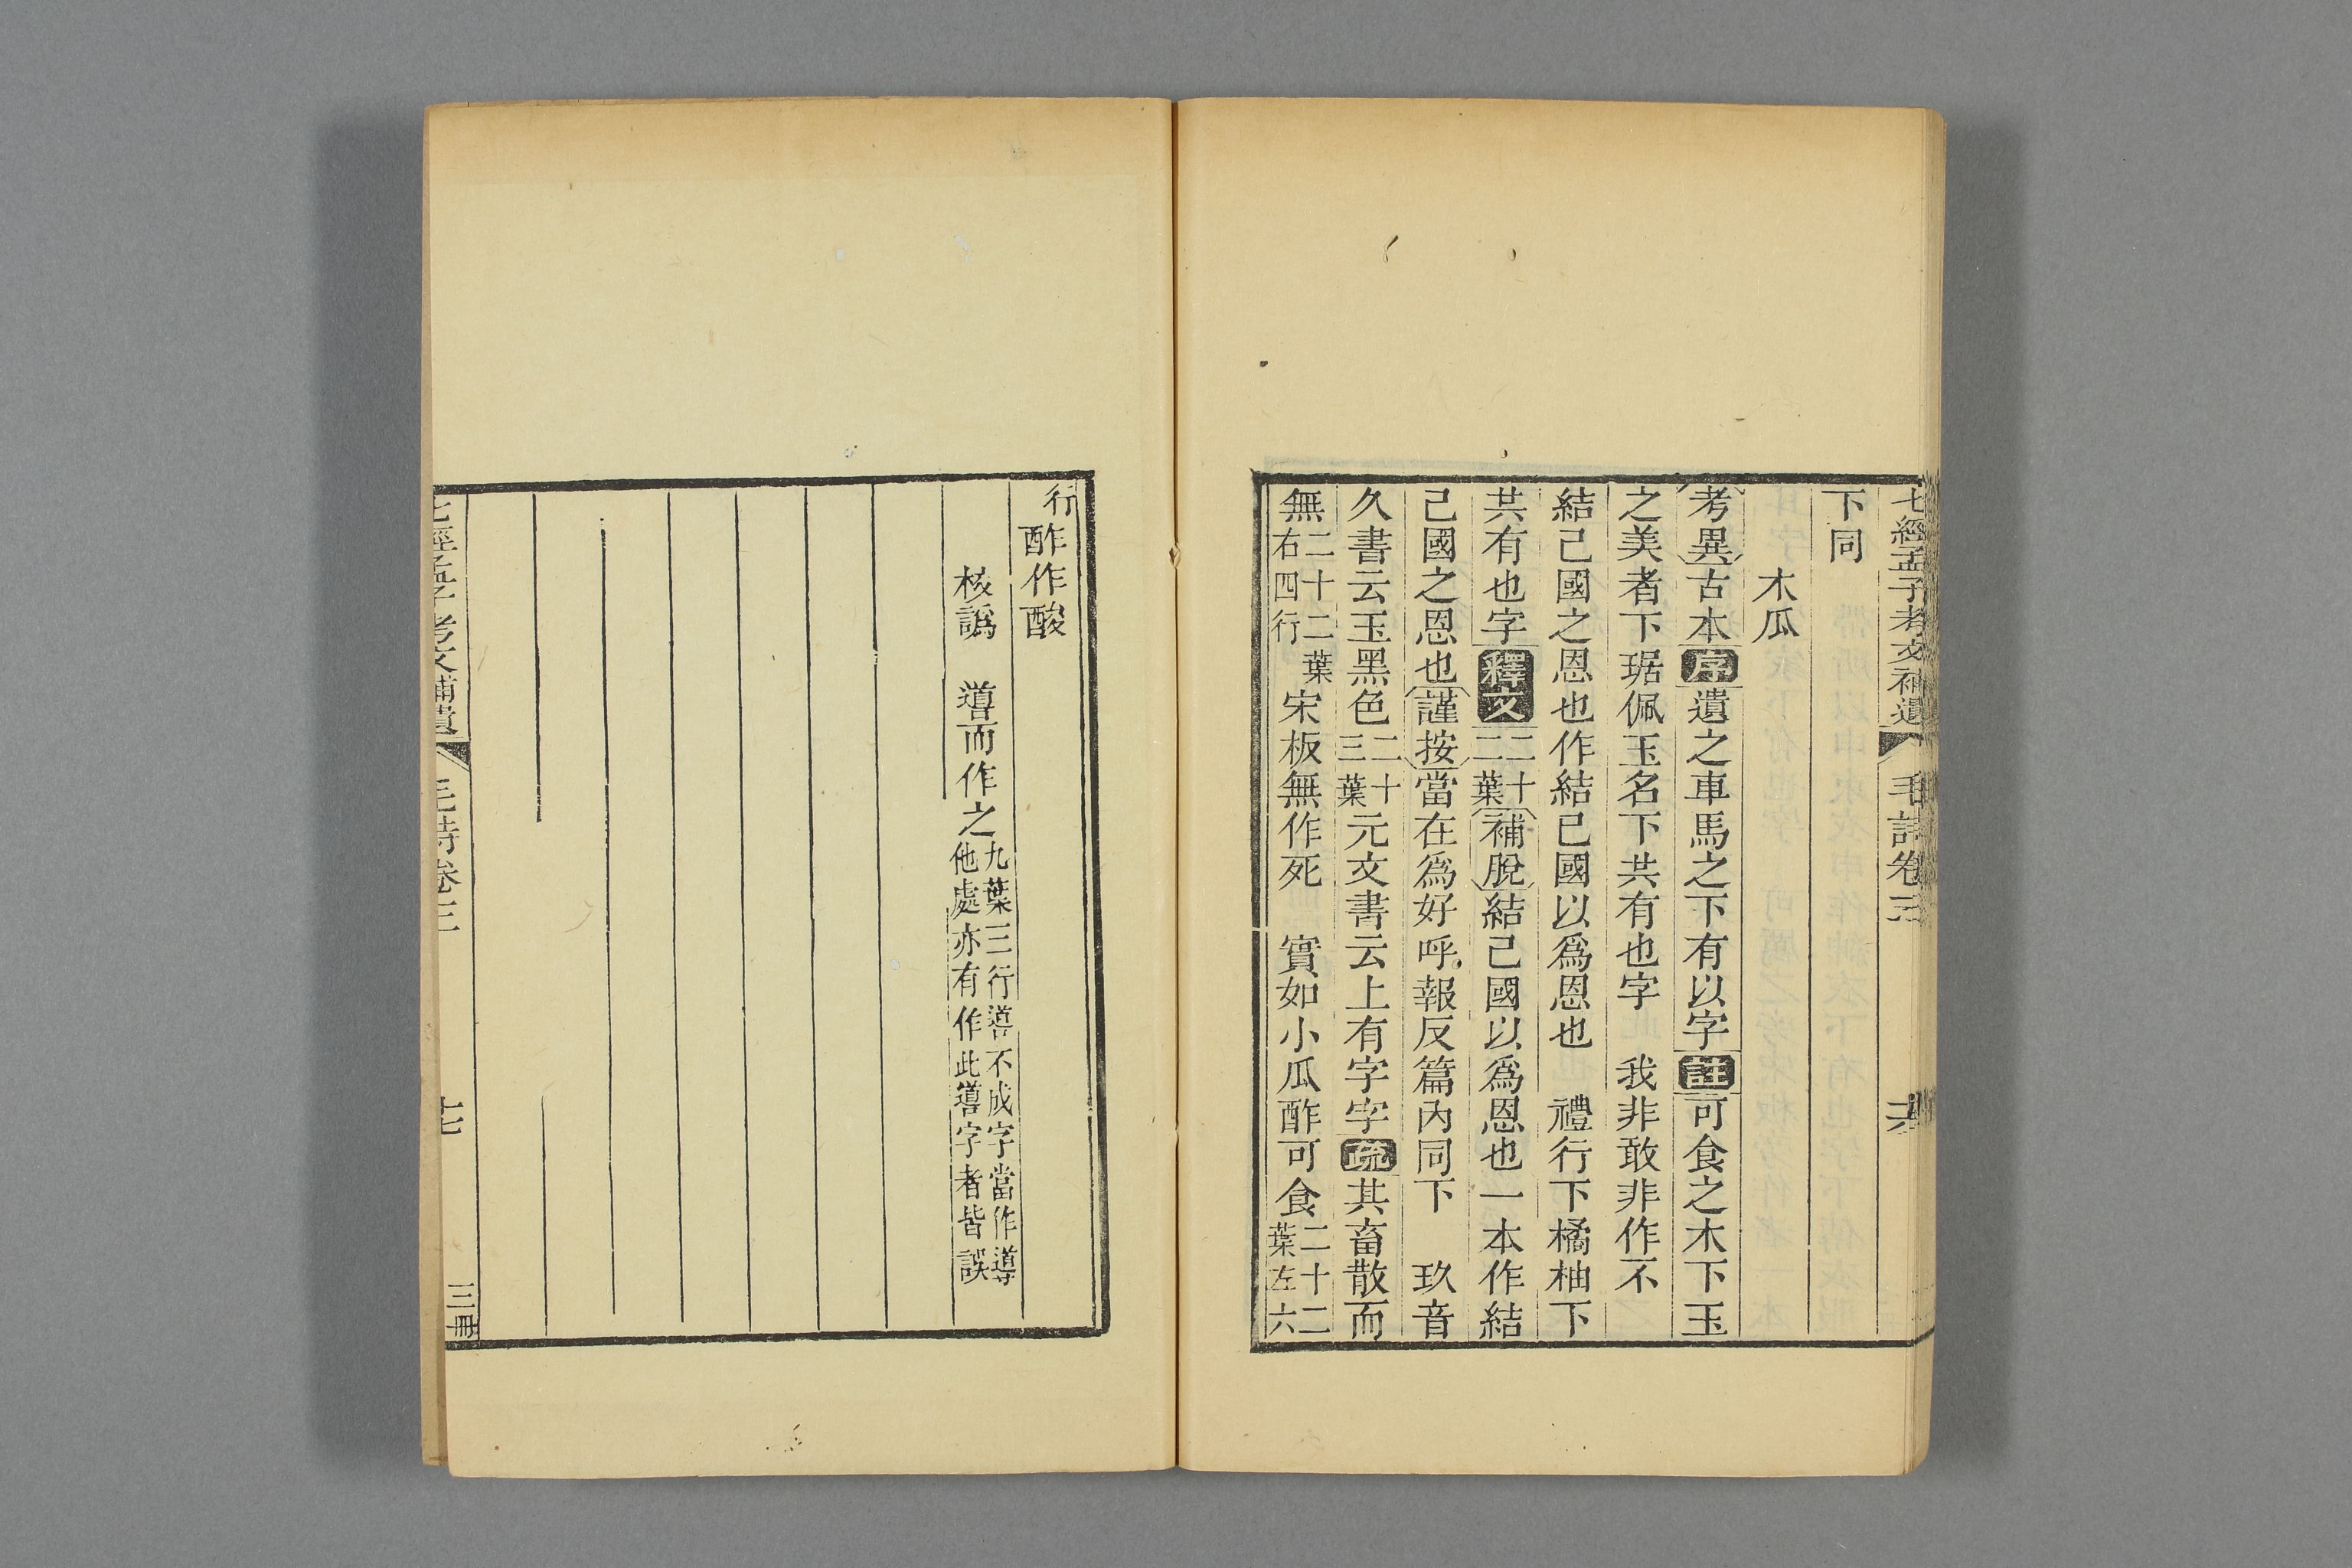 七經孟子考文補遺 毛詩卷三
下同
木瓜
考異古本序遺之車馬之下有以字註可食之木下玉
之美者下琚佩玉名下共有也字 我非敢非作不
結己國之恩也作結己國以爲恩也 禮行下橘柚下
共有也字釋文二十二葉補脫結己國以爲恩也一本作結
己國之恩也謹按當在爲好呼報反篇內同下 玖音
久書云玉黑色二十三葉元文書云上有字字疏其畜散而
無二十二葉右四行宋板無作死 實如小瓜酢可食二十二葉左六
行酢作酸
校譌 噵而作之九葉三行噵不成字當作導他處亦有作此噵字者皆誤
七經孟子考文補遺 毛詩卷三 十七 三冊